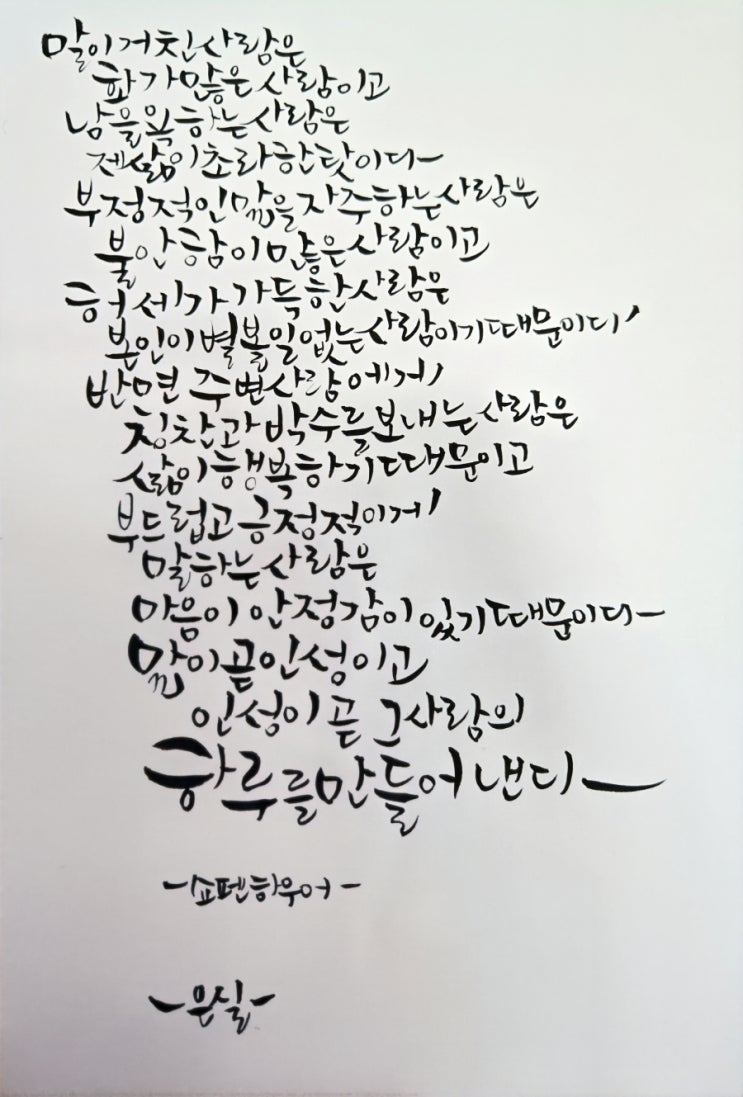 말이 거친 사람은
화가 많은 사람이고
남을 욕하는 사람은
제 삶이 초라한 탓이다
부정적인 말을 자주하는 사람은
불안함이 많은 사람이고
허세가 가득한 사람은
본인이 별 볼 일 없는 사람이기 때문이다
반면 주변 사람에게
칭찬과 박수를 보내는 사람은
삶이 행복하기 때문이고
부드럽고 긍정적이게
말하는 사람은
마음이 안정감이 있기 때문이다
말이 곧 인성이고
인성이 곧 그 사람의
하루를 만들어 낸다
-쇼펜하우어-
-은실-